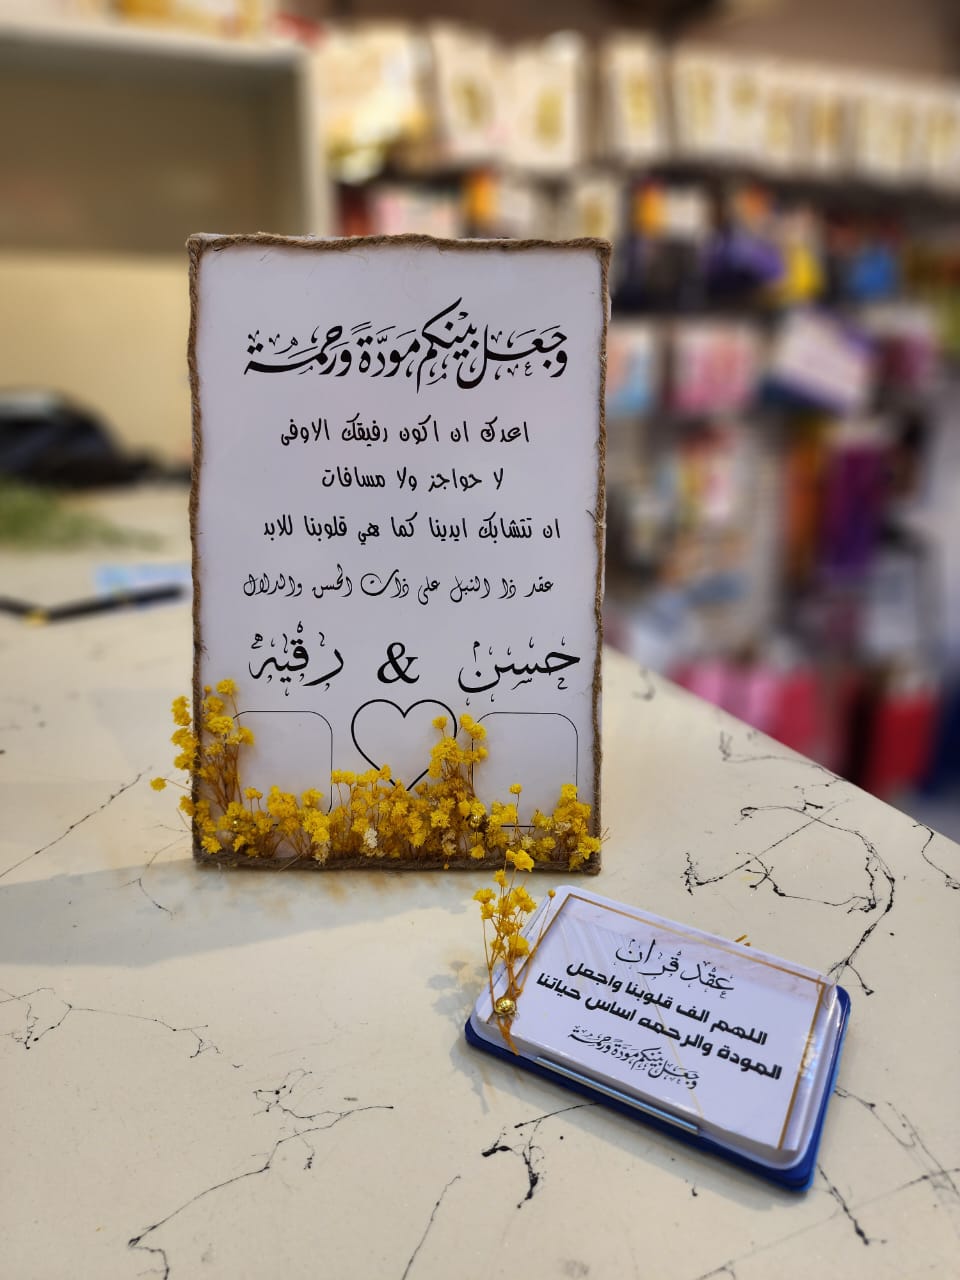 وَجَعَلَ بَيْنَكُم مَوَدَّةً وَرَحْمَةً
اعدك ان اكون رفيقك الاوفى
لا حواجز ولا مسافات
ان تتشابك ايدينا كما هي قلوبنا للابد
عقد ذا النبل على ذات الحسن والدلال
حسن & رقيه
عقد قران
اللهم الف قلوبنا واجعل
المودة والرحمه اساس حياتنا
وَجَعَلَ بَيْنَكُم مَوَدَّةً وَرَحْمَةً